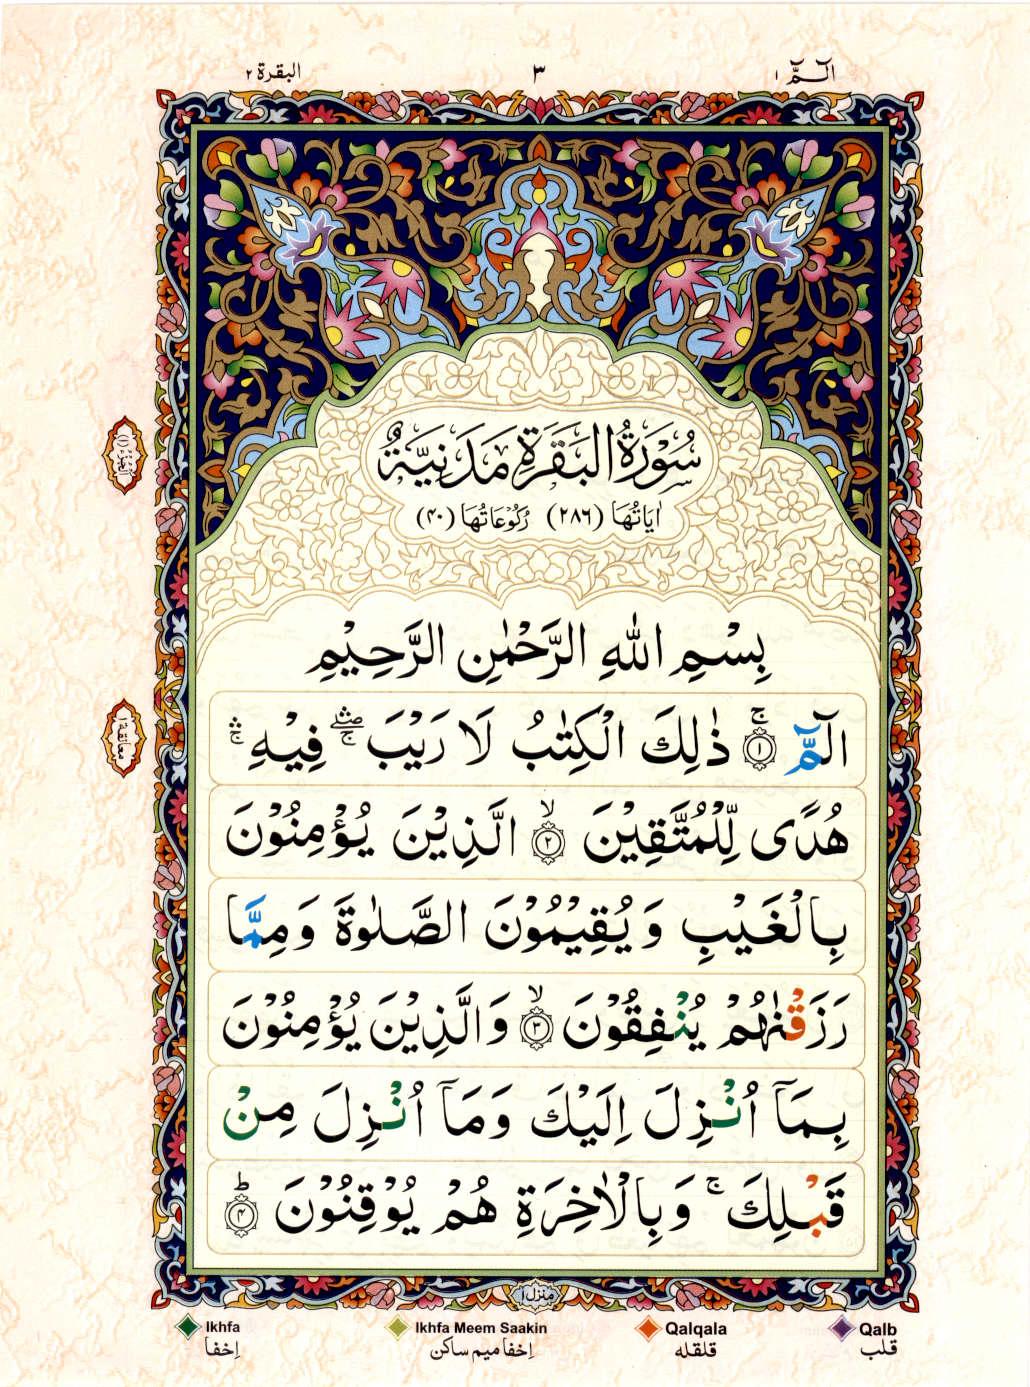 الٓـمّٓ ١
٣
البقرة ٢
سُوْرَةُ الْبَقَرَةِ مَدَنِيَّةٌ
اٰيَاتُهَا (٢٨٦) رُكُوْعَاتُهَا (۴۰)
بِسْمِ اللهِ الرَّحْمٰنِ الرَّحِيْمِ
الٓـمّٓ ۚ ﴿١﴾ ذٰلِكَ الْكِتٰبُ لَا رَيْبَ ۛۖۚ فِيْهِ ۛۚ
هُدًى لِّلْمُتَّقِيْنَ ۙ ﴿٢﴾ الَّذِيْنَ يُؤْمِنُوْنَ
بِالْغَيْبِ وَيُقِيْمُوْنَ الصَّلٰوةَ وَمِمَّا
رَزَقْنٰهُمْ يُنْفِقُوْنَ ۙ ﴿٣﴾ وَالَّذِيْنَ يُؤْمِنُوْنَ
بِمَآ اُنْزِلَ اِلَيْكَ وَمَآ اُنْزِلَ مِنْ
قَبْلِكَ ۚ وَبِالْاٰخِرَةِ هُمْ يُوْقِنُوْنَ ؕ ﴿۴﴾
الجزء (١)
معانقة ١
منزل ١
Ikhfa
اِخفا
Ikhfa Meem Saakin
اِخفا میم ساکن
Qalqala
قلقله
Qalb
قلب